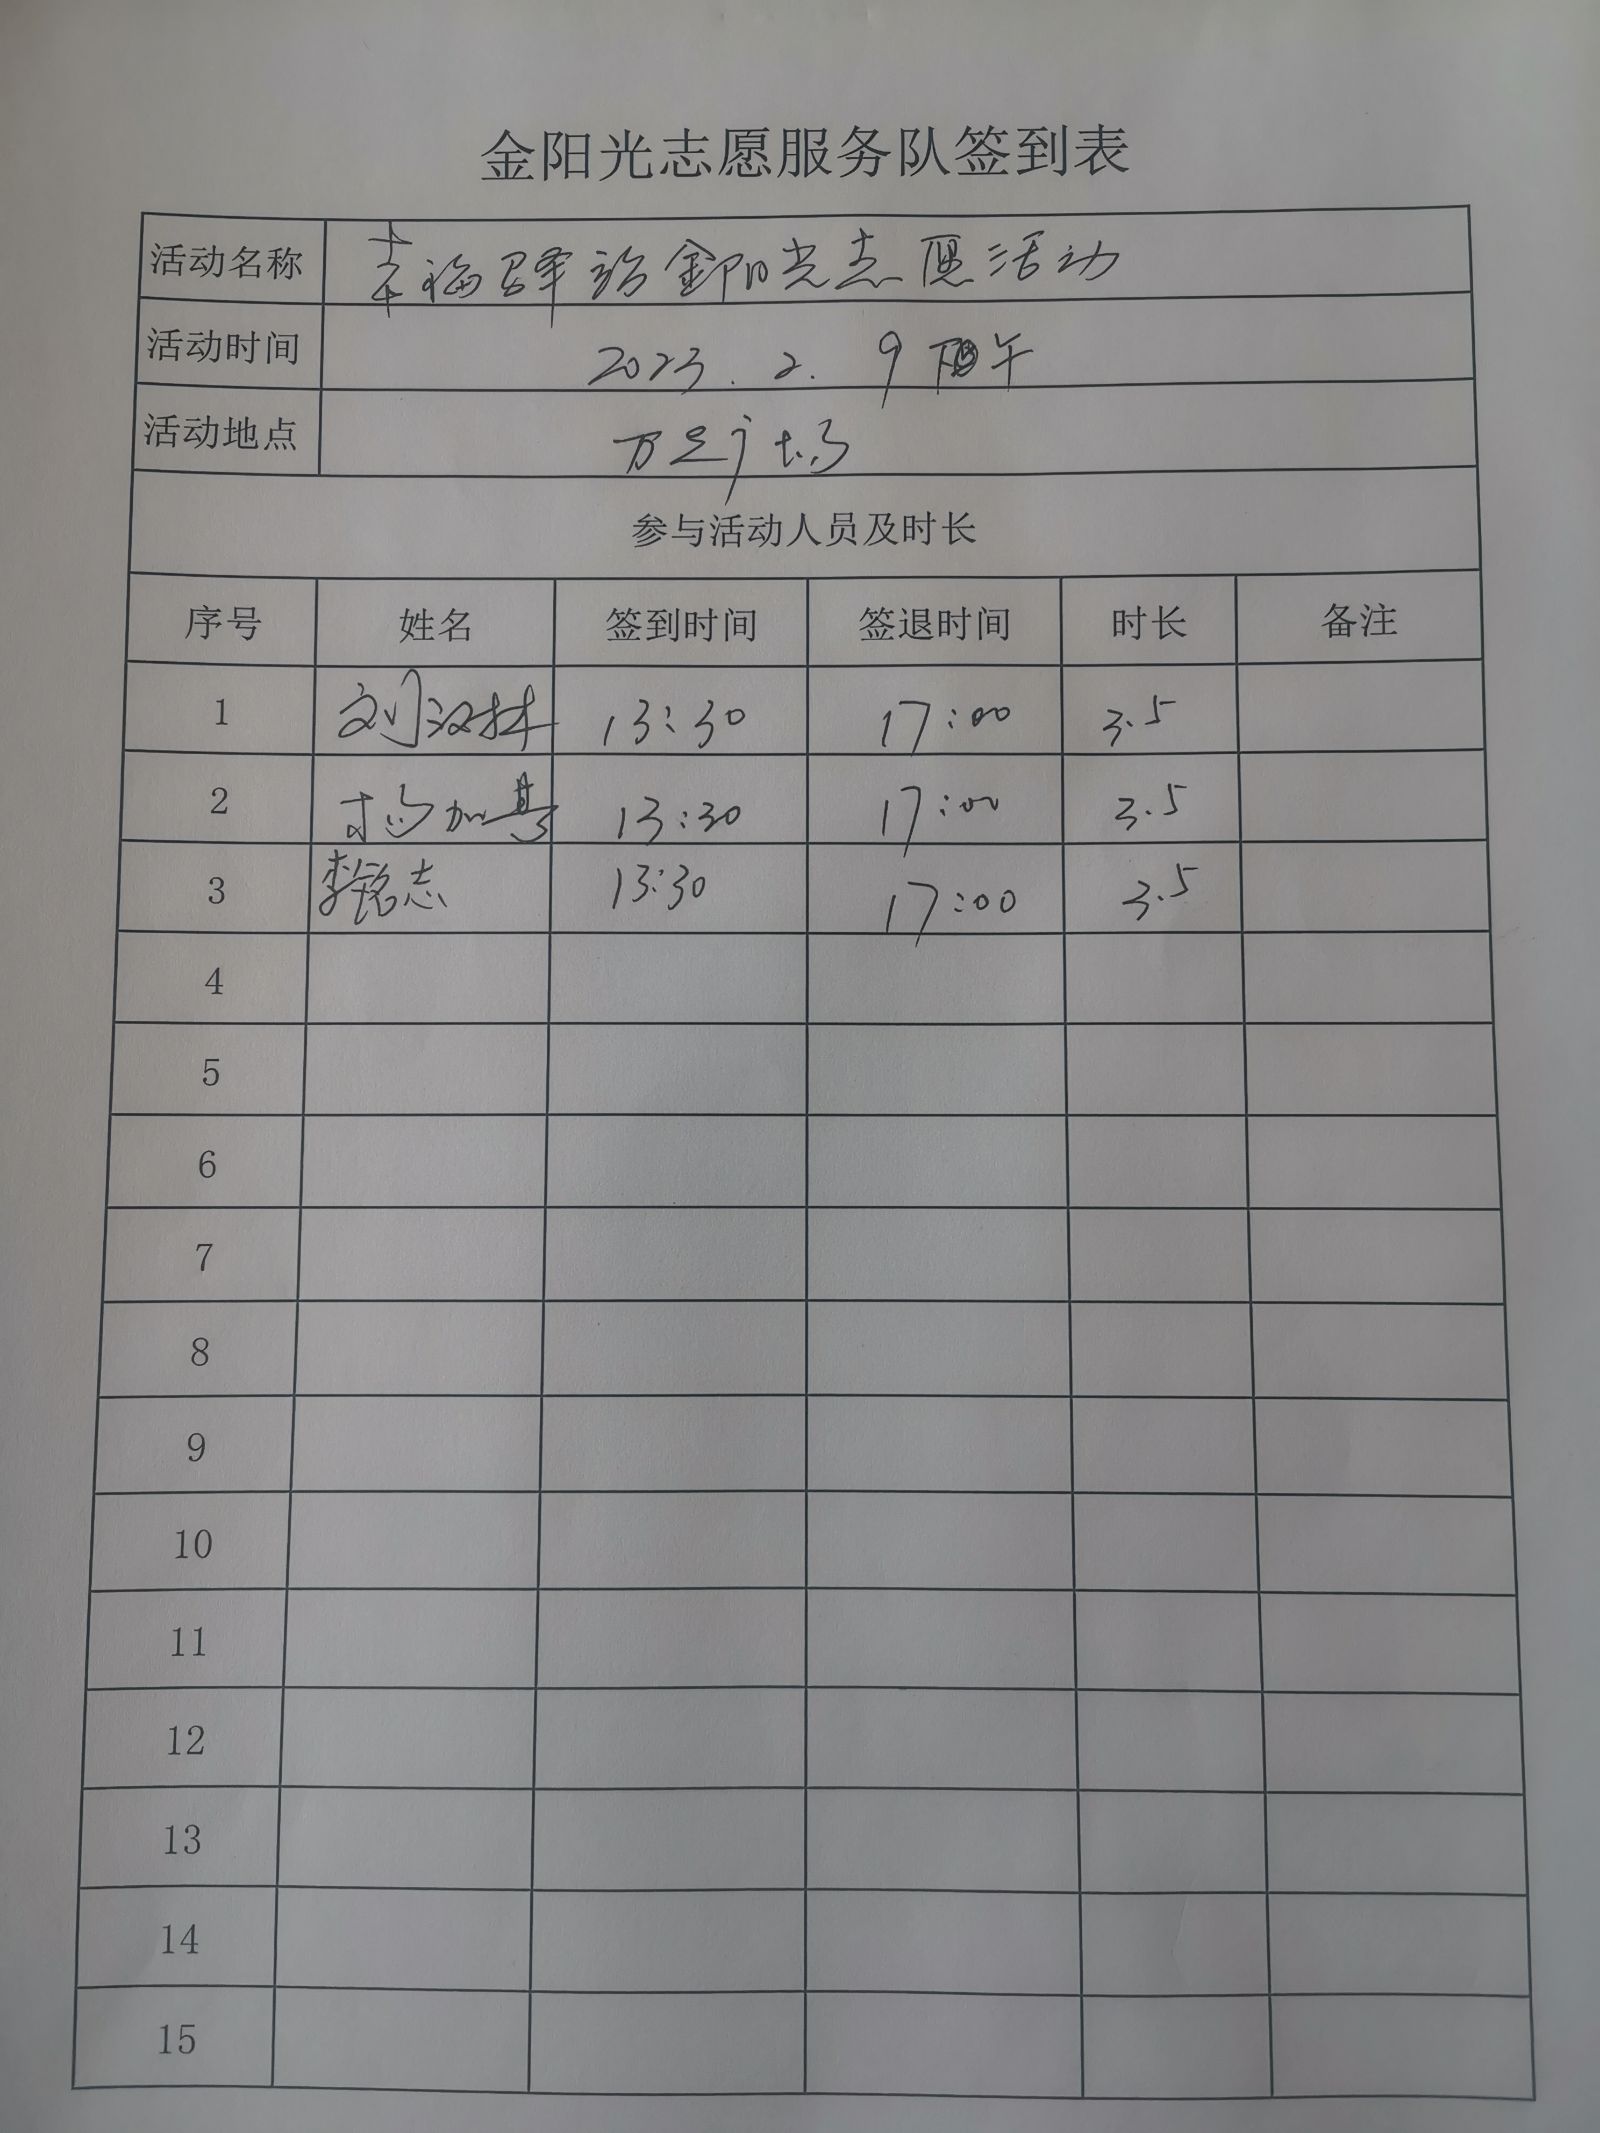 金阳光志愿服务队签到表
活动名称 幸福驿站金阳光志愿活动
活动时间 2023.2.9 下午
活动地点 万足广场
参与活动人员及时长
序号 姓名 签到时间 签退时间 时长 备注
1 刘汉林 13:30 17:00 3.5
2 加 13:30 17:00 3.5
3 李铭志 13:30 17:00 3.5
4
5
6
7
8
9
10
11
12
13
14
15